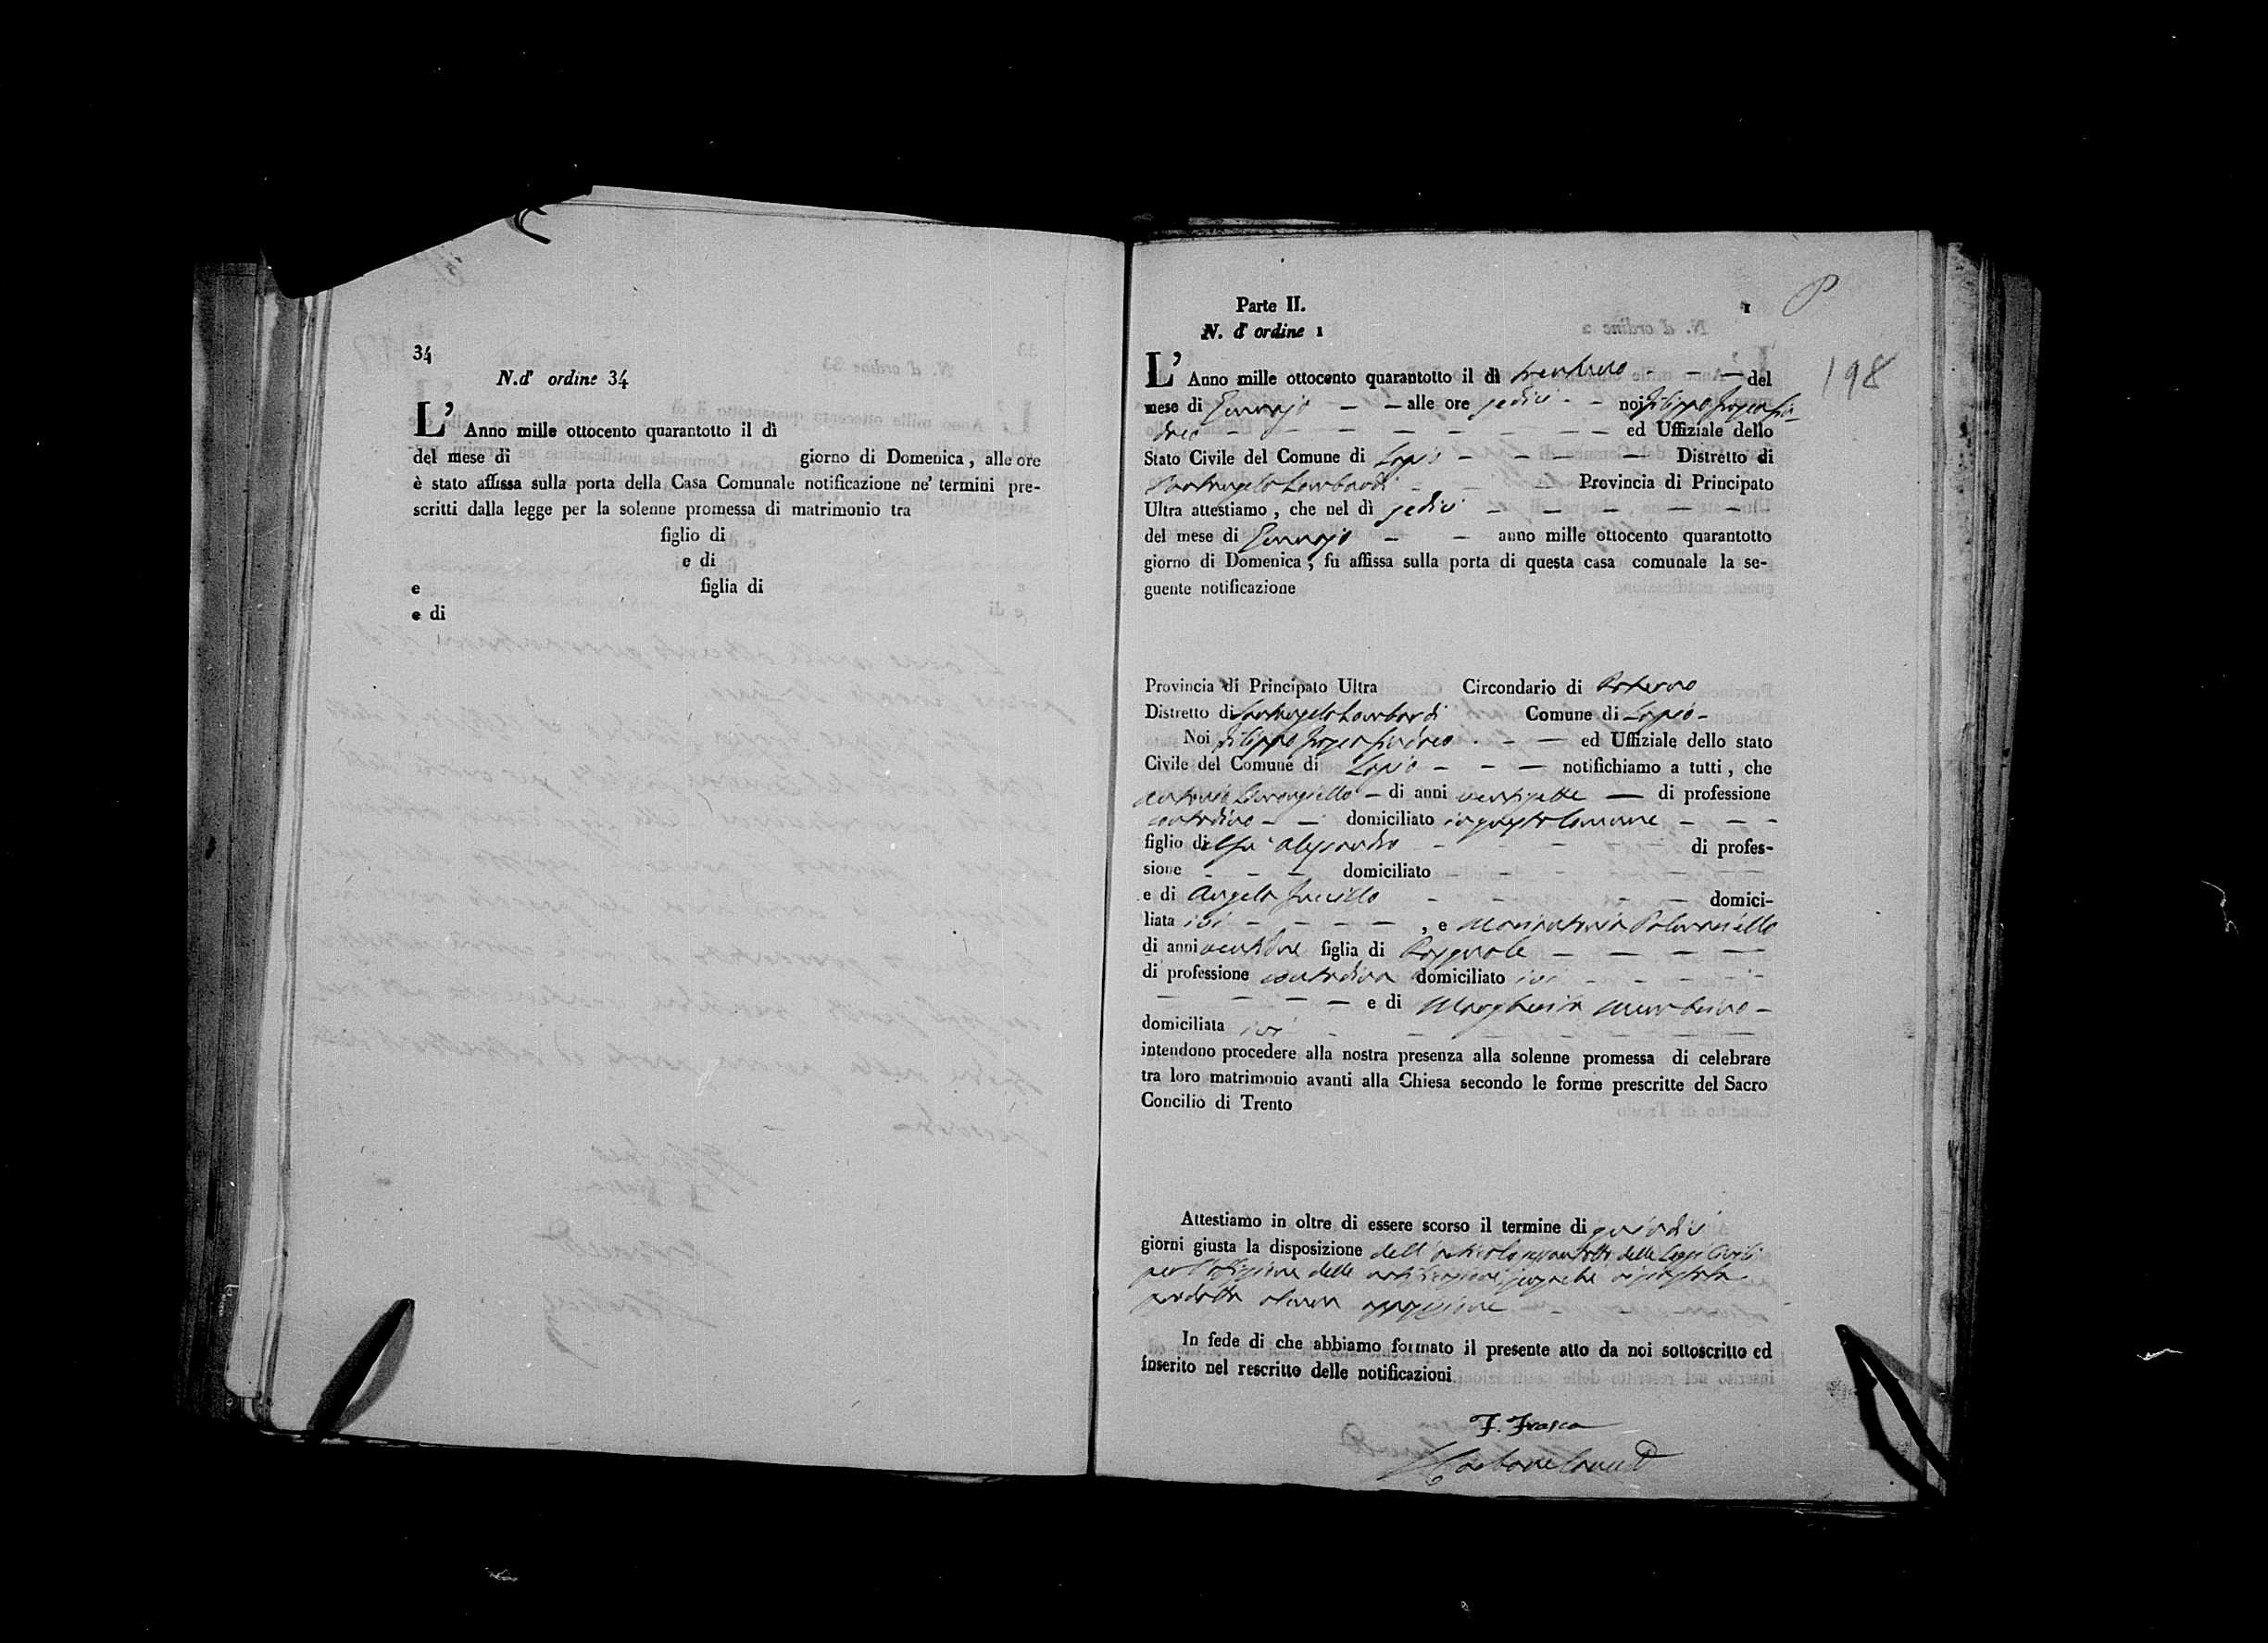 34
N. d' ordine 34
L' Anno mille ottocento quarantotto il dì
del mese di giorno di Domenica, alle ore
è stato affissa sulla porta della Casa Comunale notificazione ne' termini pre-
scritti dalla legge per la solenne promessa di matrimonio tra
figlio di
e di
e figlia di
e di
Parte II. 1 P
N. d' ordine 1
198
L' Anno mille ottocento quarantotto il dì trentuno del
mese di Gennajo alle ore sedici noi Filippo Frasca Sin-
daco ed Uffiziale dello
Stato Civile del Comune di Lapio Distretto di
Santangelo Lombardi Provincia di Principato
Ultra attestiamo, che nel dì sedici
del mese di Gennajo anno mille ottocento quarantotto
giorno di Domenica, fu affissa sulla porta di questa casa comunale la se-
guente notificazione
Provincia di Principato Ultra Circondario di Paterno
Distretto di Santangelo Lombardi Comune di Lapio
Noi Filippo Frasca Sindaco ed Uffiziale dello stato
Civile del Comune di Lapio notifichiamo a tutti, che
Antonio di anni ventisette di professione
contadino domiciliato in questo Comune
figlio di Alessandro di profes-
sione domiciliato
e di Angela domici-
liata ivi, e Mariantonia
di anni ventidue figlia di Pasquale
di professione contadina domiciliato ivi
e di Margherita
domiciliata ivi
intendono procedere alla nostra presenza alla solenne promessa di celebrare
tra loro matrimonio avanti alla Chiesa secondo le forme prescritte del Sacro
Concilio di Trento
Attestiamo in oltre di essere scorso il termine di quindici
giorni giusta la disposizione dell'articolo sessantotto delle Leggi Civili
per l'affissione delle notificazioni, senza che vi sia stata
prodotta alcuna opposizione
In fede di che abbiamo formato il presente atto da noi sottoscritto ed
inserito nel rescritto delle notificazioni
F. Frasca